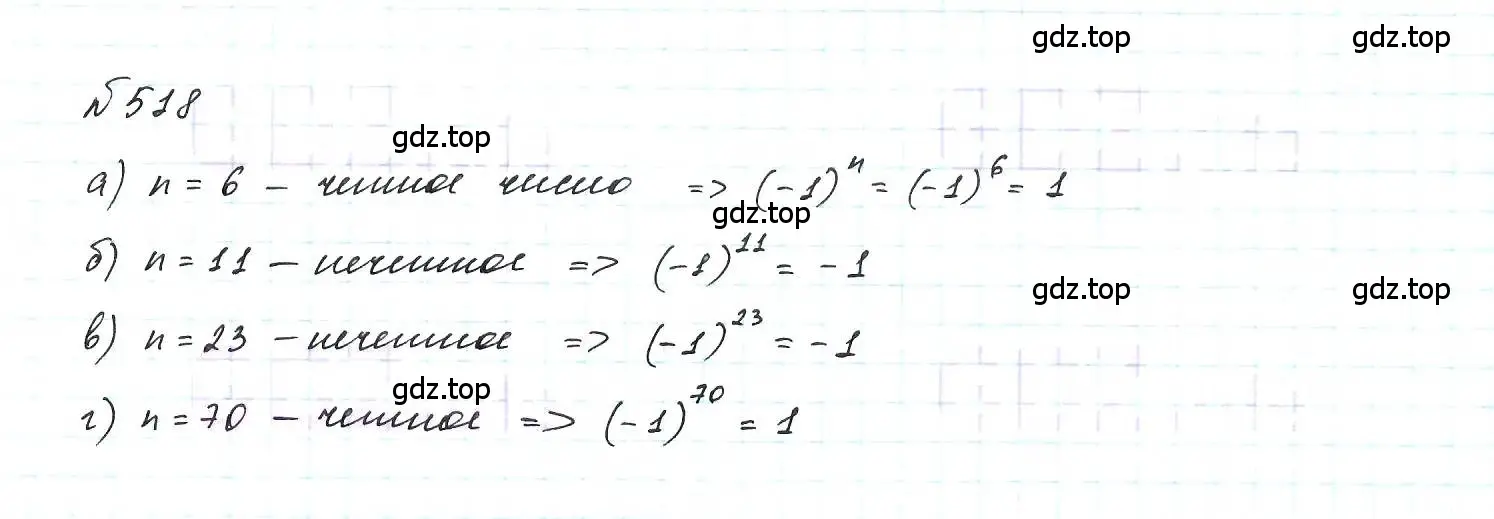 gdz.top gdz.top
№518
gdz.top
а) n = 6 – четное число => (-1)^n = (-1)^6 = 1
gdz.top
б) n = 11 – нечетное => (-1)^11 = -1
gdz.top gdz.top
в) n = 23 – нечетное => (-1)^23 = -1
gdz.top
г) n = 70 – четное => (-1)^70 = 1